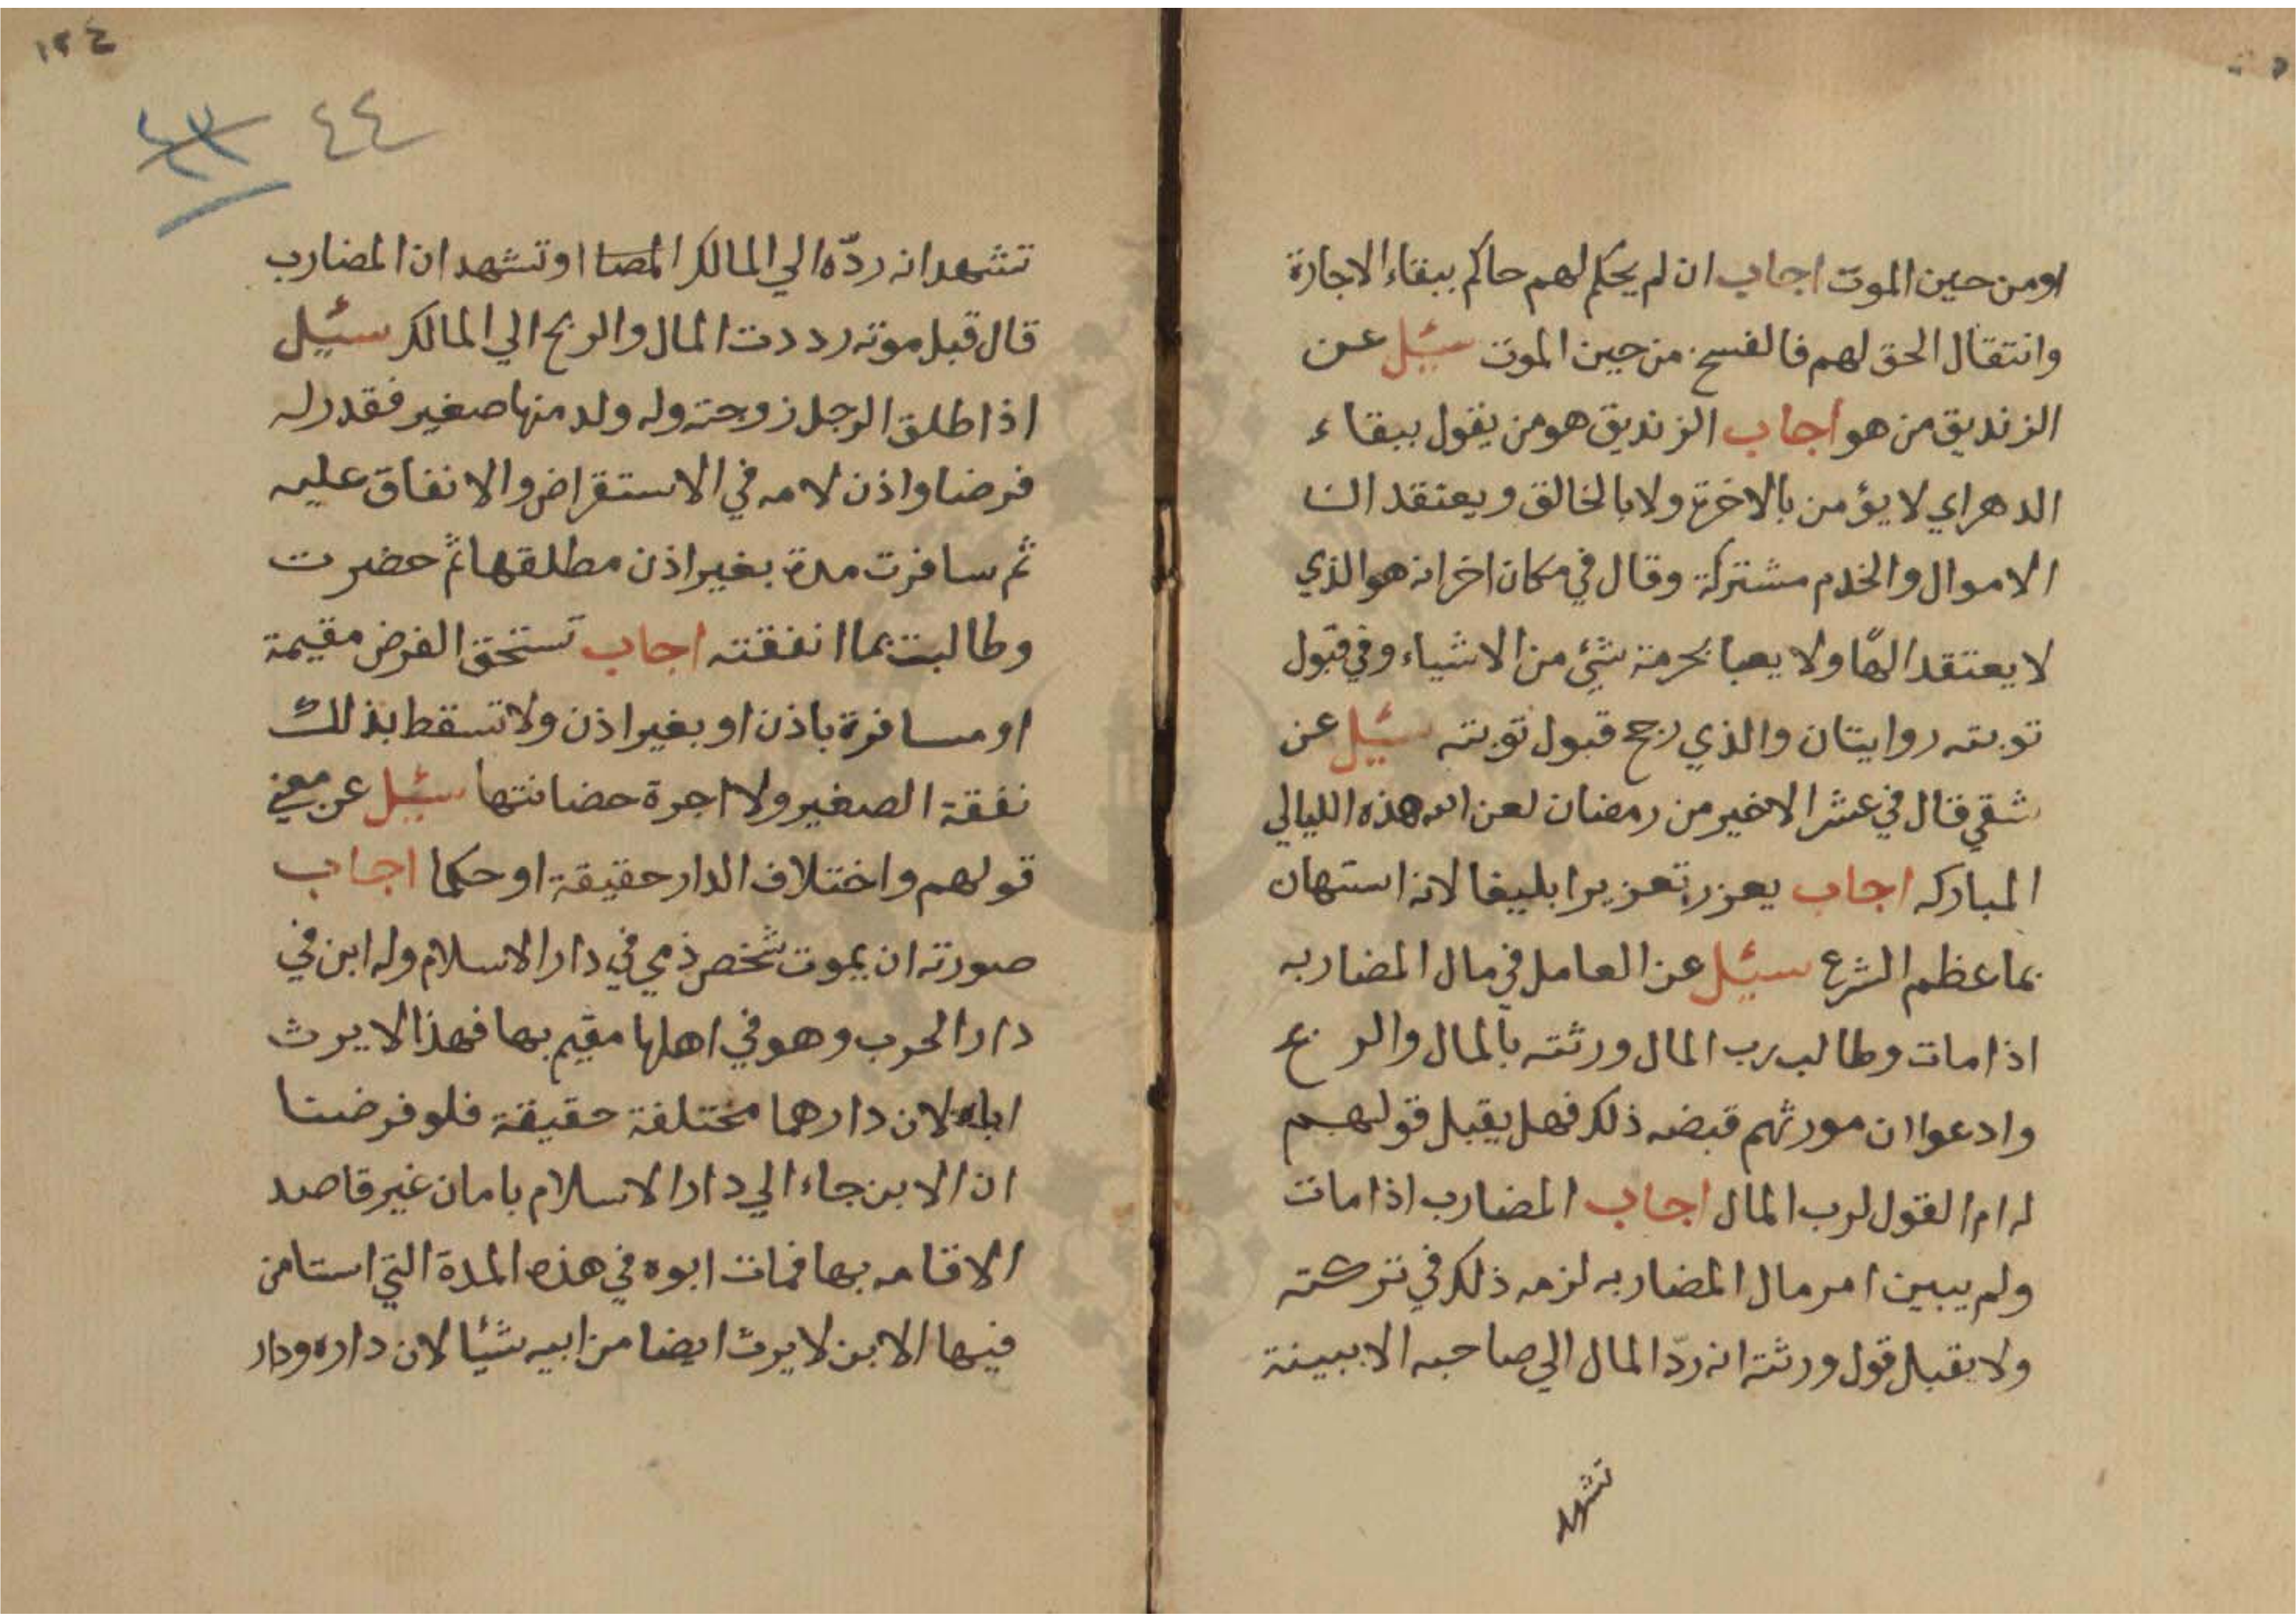 اومن حين الموت اجاب ان لم يحكم لهم حاكم ببقاء الاجارة
وانتقال الحق لهم فالفسخ من حين الموت سئيل عن
الزنديق من هو اجاب الزنديق هو من يقول ببقاء
الدهر اي لا يؤمن بالاخرة ولا بالخالق ويعتقد ان
الاموال والخدم مشتركة وقال في مكان اخر انه هو الذي
لا يعتقد الهًا ولا يعبا بحرمة شئ من الاشياء وفي قبول
توبته روايتان والذي رجح قبول توبته سئيل عن
شقي قال في عشر الاخير من رمضان لعن الله هذه الليالي
المباركه اجاب يعزر تعزيرا بليغا لانه استهان
بما عظم الشرع سئيل عن العامل في مال المضاربه
اذا مات وطالب رب المال ورثته بالمال والربح
وادعوا ان مورثهم قبضه ذلك فهل يقبل قولهم
له ام القول لرب المال اجاب المضارب اذا مات
ولم يبين امر مال المضاربه لزمه ذلك في تركته
ولا يقبل قول ورثته انه ردّ المال الي صاحبه الا ببينة
تشهد
١٢٤
٤٤
تشهد انه ردّه الي المالك المصا او تشهد ان المضارب
قال قبل موته رددت المال والربح الي المالك سئيل
اذا طلق الرجل زوجته وله ولد منها صغير فقدر له
فرضا واذن لامه في الاستقراض والانفاق عليه
ثم سافرت مدة بغير اذن مطلقها ثم حضرت
وطالبت بما انفقته اجاب تستحق الفرض مقيمة
او مسافرة باذن او بغير اذن ولا تسقط بذلك
نفقة الصغير ولا اجرة حضانتها سئيل عن معني
قولهم واختلاف الدار حقيقة او حكما اجاب
صورته ان يموت شخص ذمي في دار الاسلام وله ابن في
دار الحرب وهو في اهلها مقيم بها فهذا لا يرث
اباه لان دارهما مختلفة حقيقة فلو فرضنا
ان الابن جاء الي دار الاسلام بامان غير قاصد
الاقامه بها فمات ابوه في هذه المدة التي استامن
فيها الابن لا يرث ايضا من ابيه شيئا لان داره ودار